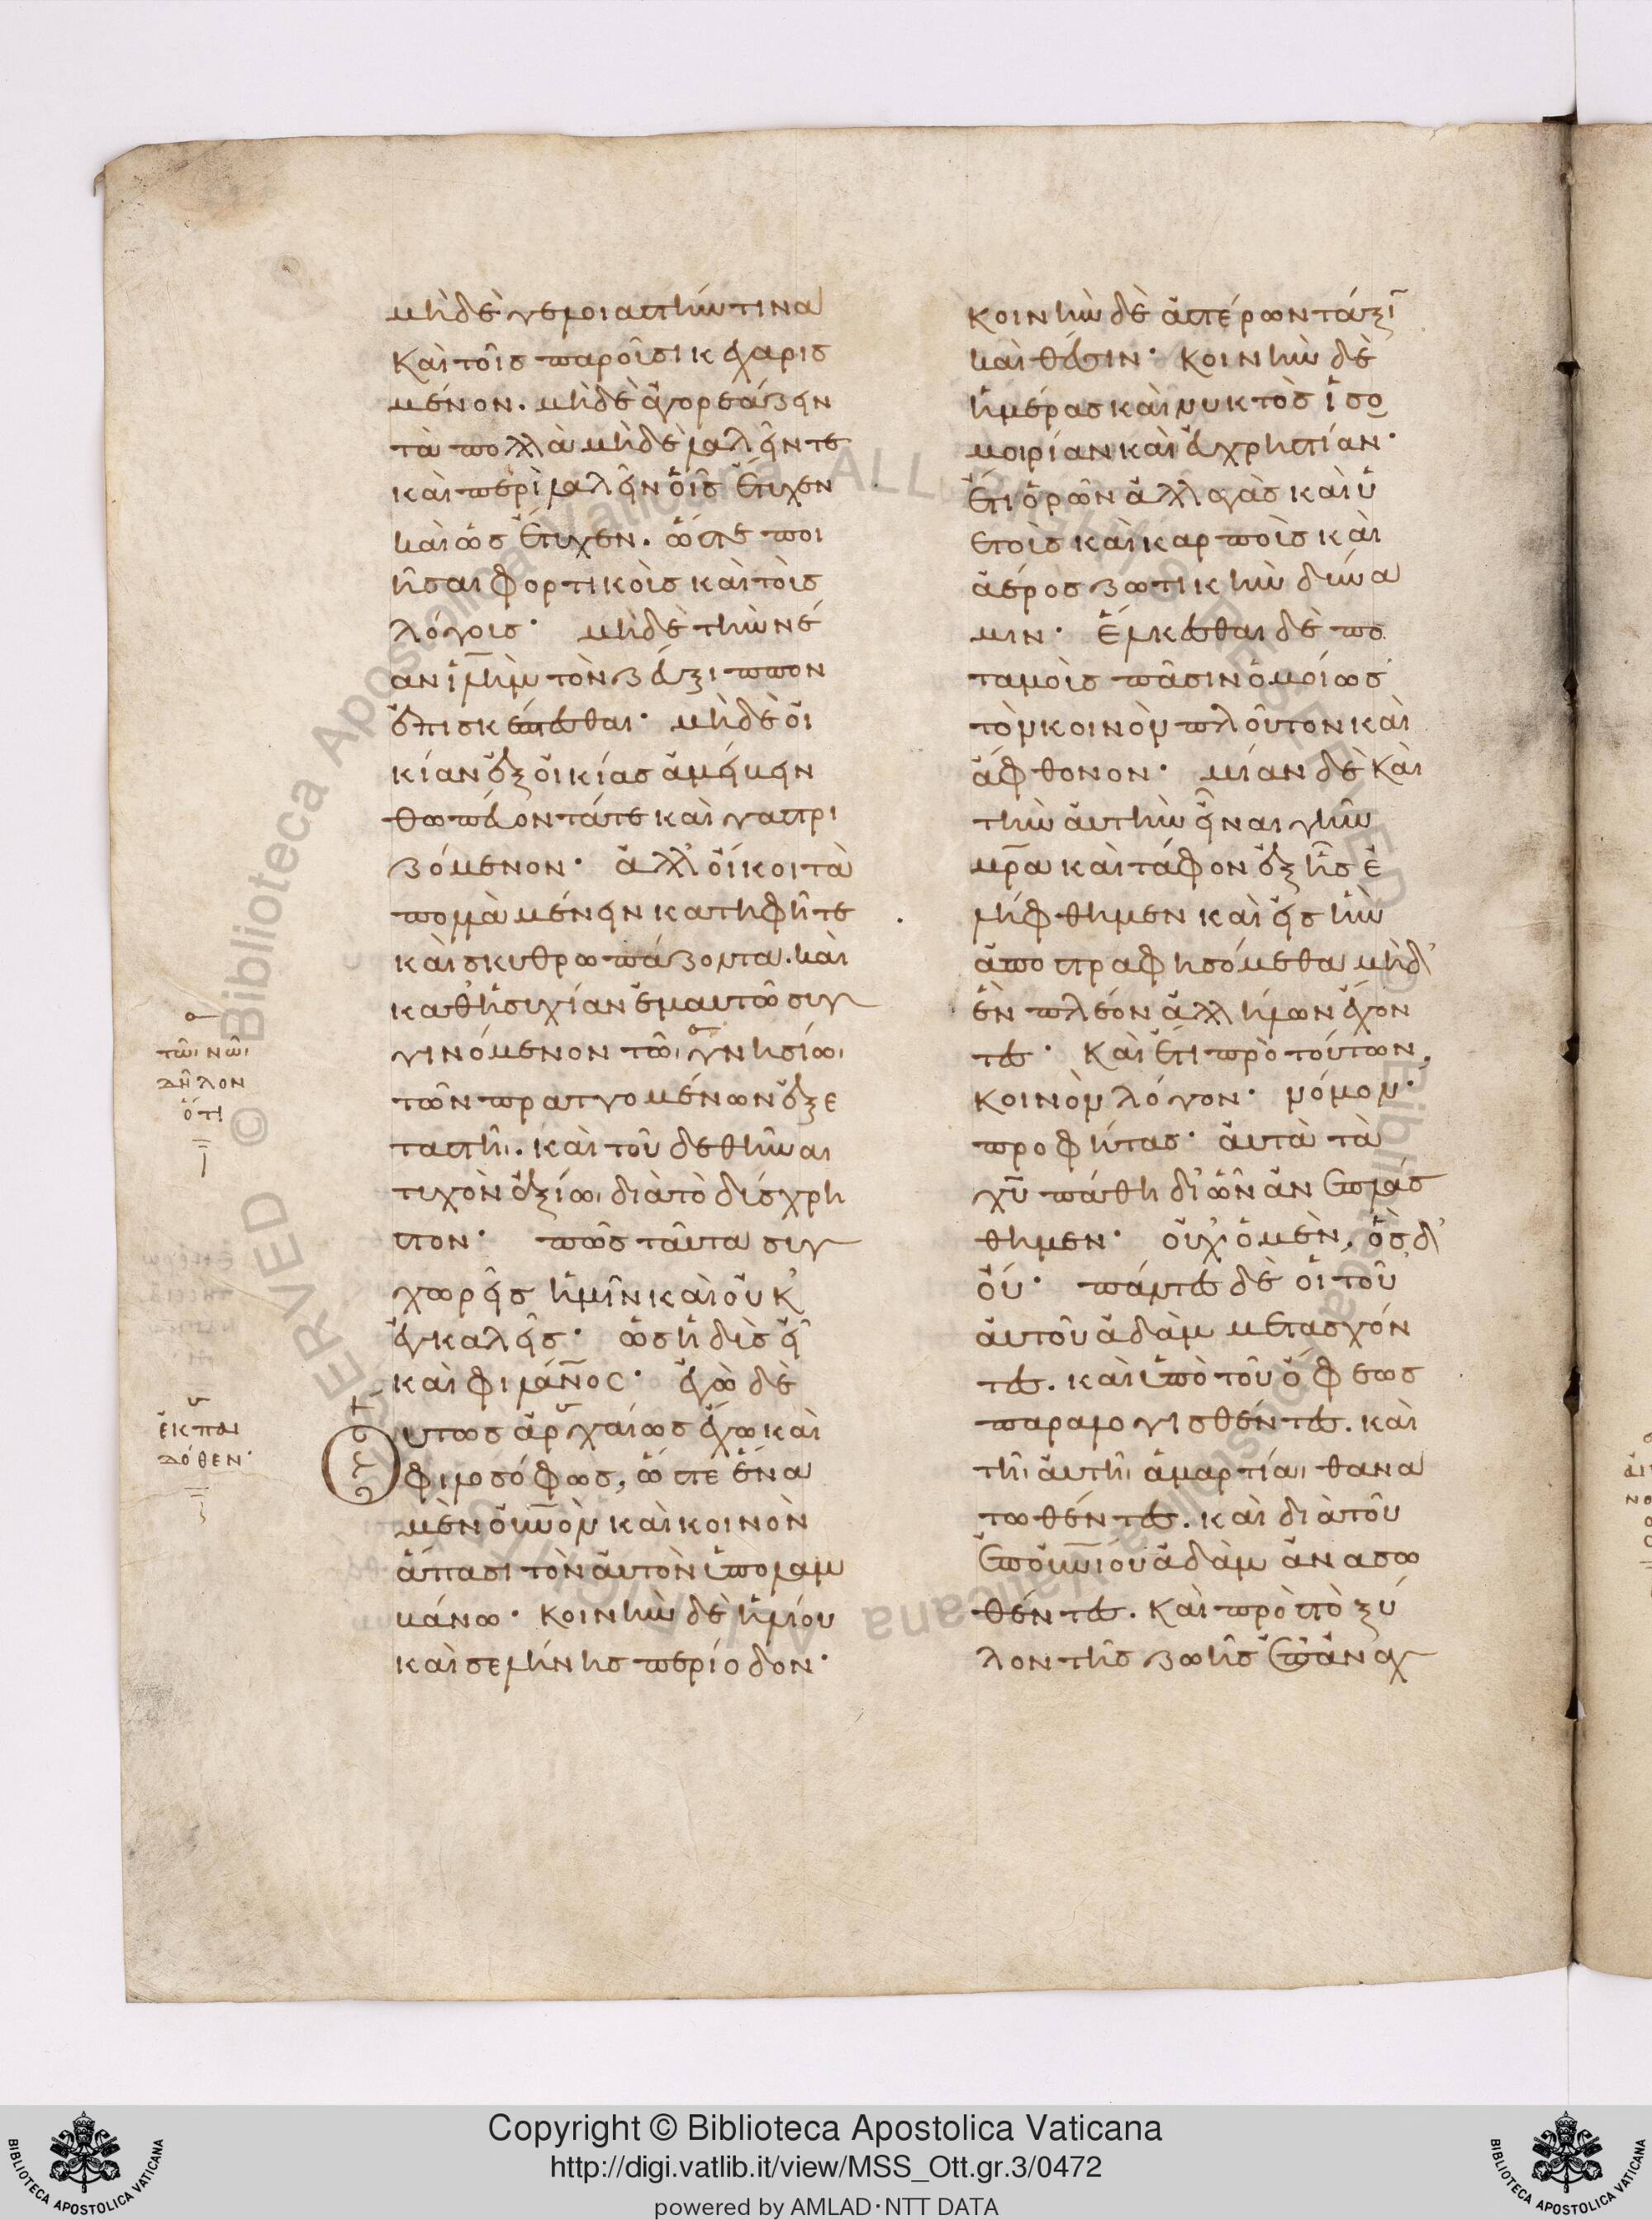 μηδὲ γελοιαστήν τινα
καὶ τοῖς παροῦσι κεχαρισ
μένον. μηδὲ ἀγοράζειν
τὰ πολλὰ μηδὲ λαλεῖν τε
καὶ περιλαλεῖν οἷς ἔτυχεν
καὶ ὡς ἔτυχεν. ὥστε ποι
ῆσαι φορτικοῖς καὶ τοῖς
λόγοις· μηδὲ τὴν νέ
αν ἱλημ τὸν ζεύξιππον
ἐπισκέπτεσθαι· μηδὲ οἰ
κίαν ἐξ οἰκίας ἀμείβειν
θωπεύοντά τε καὶ γαστρι
ζόμενον· ἀλλ' οἴκοι τὰ
πολλὰ μένειν κατηφῆ τε
καὶ σκυθρωπάζοντα. καὶ
καθ' ἡσυχίαν ἐμαυτῷ συγ
γινόμενον τῶι γνησίωι
τῶν πραττομένων ἐξε
ταστῆι. καὶ τοῦ δεθῆναι
τυχὸν ἀξίωι διὰ τὸ δύσχρη
στον· πῶς ταῦτα συγ
χωρεῖς ἡμῖν καὶ οὐκ
ἐγκαλεῖς· ὡς ἡδὺς εἶ
καὶ φιλάνος· ἐγὼ δὲ
Οὕτως ἀρχαίως ἔχω καὶ
φιλοσόφως, ὥστε ἕνα
μὲν οὐνον καὶ κοινὸν
ἅπασι τὸν αὐτὸν ὑπολαμ
βάνω· κοινὴν δὲ ἡλίου
καὶ σελήνης περίοδον·
τῶι νῶι
δῆλον
ὅτι
ἐκ παι
δόθεν·
κοινὴν δὲ ἀστέρων τάξι
καὶ θέσιν· κοινὴν δὲ
ἡμέρας καὶ νυκτὸς ἰσο
μοιρίαν καὶ εὐχρηστίαν·
ἔτι ὁρῶν ἀλλαγὰς καὶ ὑ
ετοῖς καὶ καρποῖς καὶ
ἀέρος ζωτικὴν δύνα
μιν· ἕλκεσθαι δὲ πο
ταμοὶς πᾶσιν ὁμοίως
τὸν κοινὸν πλοῦτον καὶ
ἄφθονον· μίαν δὲ καὶ
τὴν αὐτὴν εἶναι γῆν
μρα καὶ τάφον ἐξ ἧς ἐ
λήφθημεν καὶ εἰς ἣν
ἀποστραφησόμεθα μηδ'
ἓν πλέον ἀλλήλων ἔχον
τες· καὶ ἔτι πρὸ τούτων,
κοινὸν λόγον· νόμον·
προφήτας· αὐτὰ τὰ
χυ πάθη δι' ὧν ἀνεπλάσ
θημεν· οὐχ' ὁ μὲν, ὃς δ'
οὔ· πάντες δὲ οἱ τοῦ
αὐτοῦ ἀδὰμ μετασχόν
τες. καὶ ὑπὸ τοῦ ὄφεως
παραλογισθέντες. καὶ
τῆι αὐτῆι ἁμαρτίαι θανα
τωθέντες. καὶ διὰ τοῦ
ἐπουνίου ἀδὰμ ἀνασω
θέντες. καὶ πρὸς τὸ ξύ
λον τῆς ζωῆς ἐπαναχ
Copyright © Biblioteca Apostolica Vaticana
http://digi.vatlib.it/view/MSS_Ott.gr.3/0472
powered by AMLAD·NTT DATA